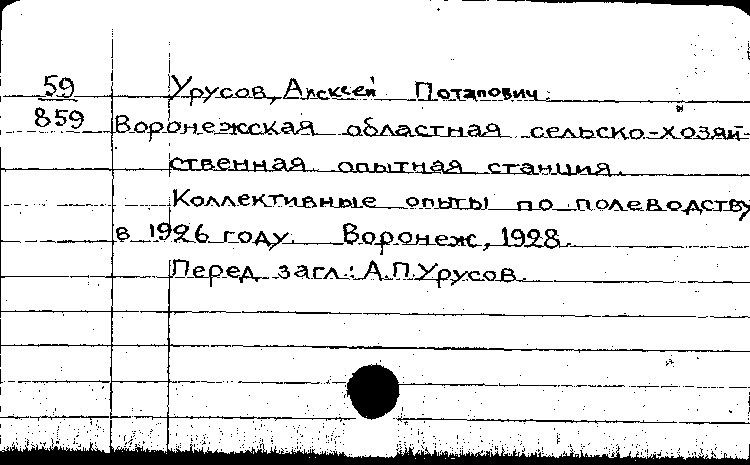 59 Урусов, Алексей Потапович.
859 Воронежская областная сельско-хозяй-
ственная опытная станция.
Коллективные опыты по полеводству
в 1926 году. Воронеж, 1928.
Перед загл.: А.П.Урусов.